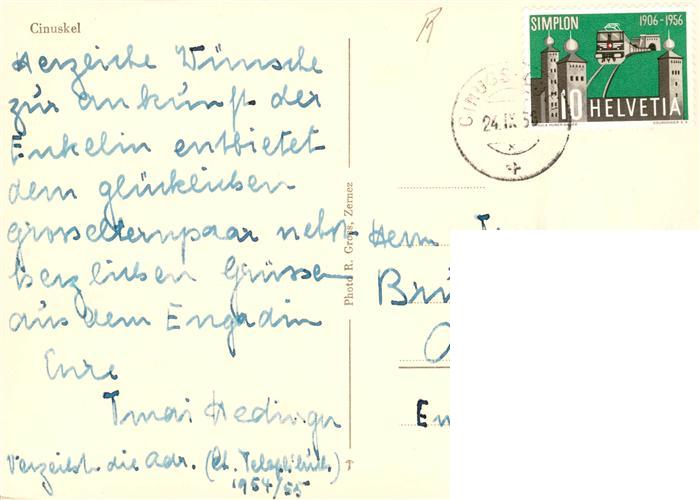 Cinuskel
Herzliche Wünsche
zur ankunft der
Enkelin entbietet
dem glücklichen
grosselternpaar nebst
herzlichen Grüssen
aus dem Engadin
Eure
Hedinger
Verzeiht die Adr. (lt. Telephbuch)
1954/55
Photo R. Grass, Zernez
SIMPLON 1906-1956
10 HELVETIA
COURVOISIER S.A.
24.IX.56
Herrn